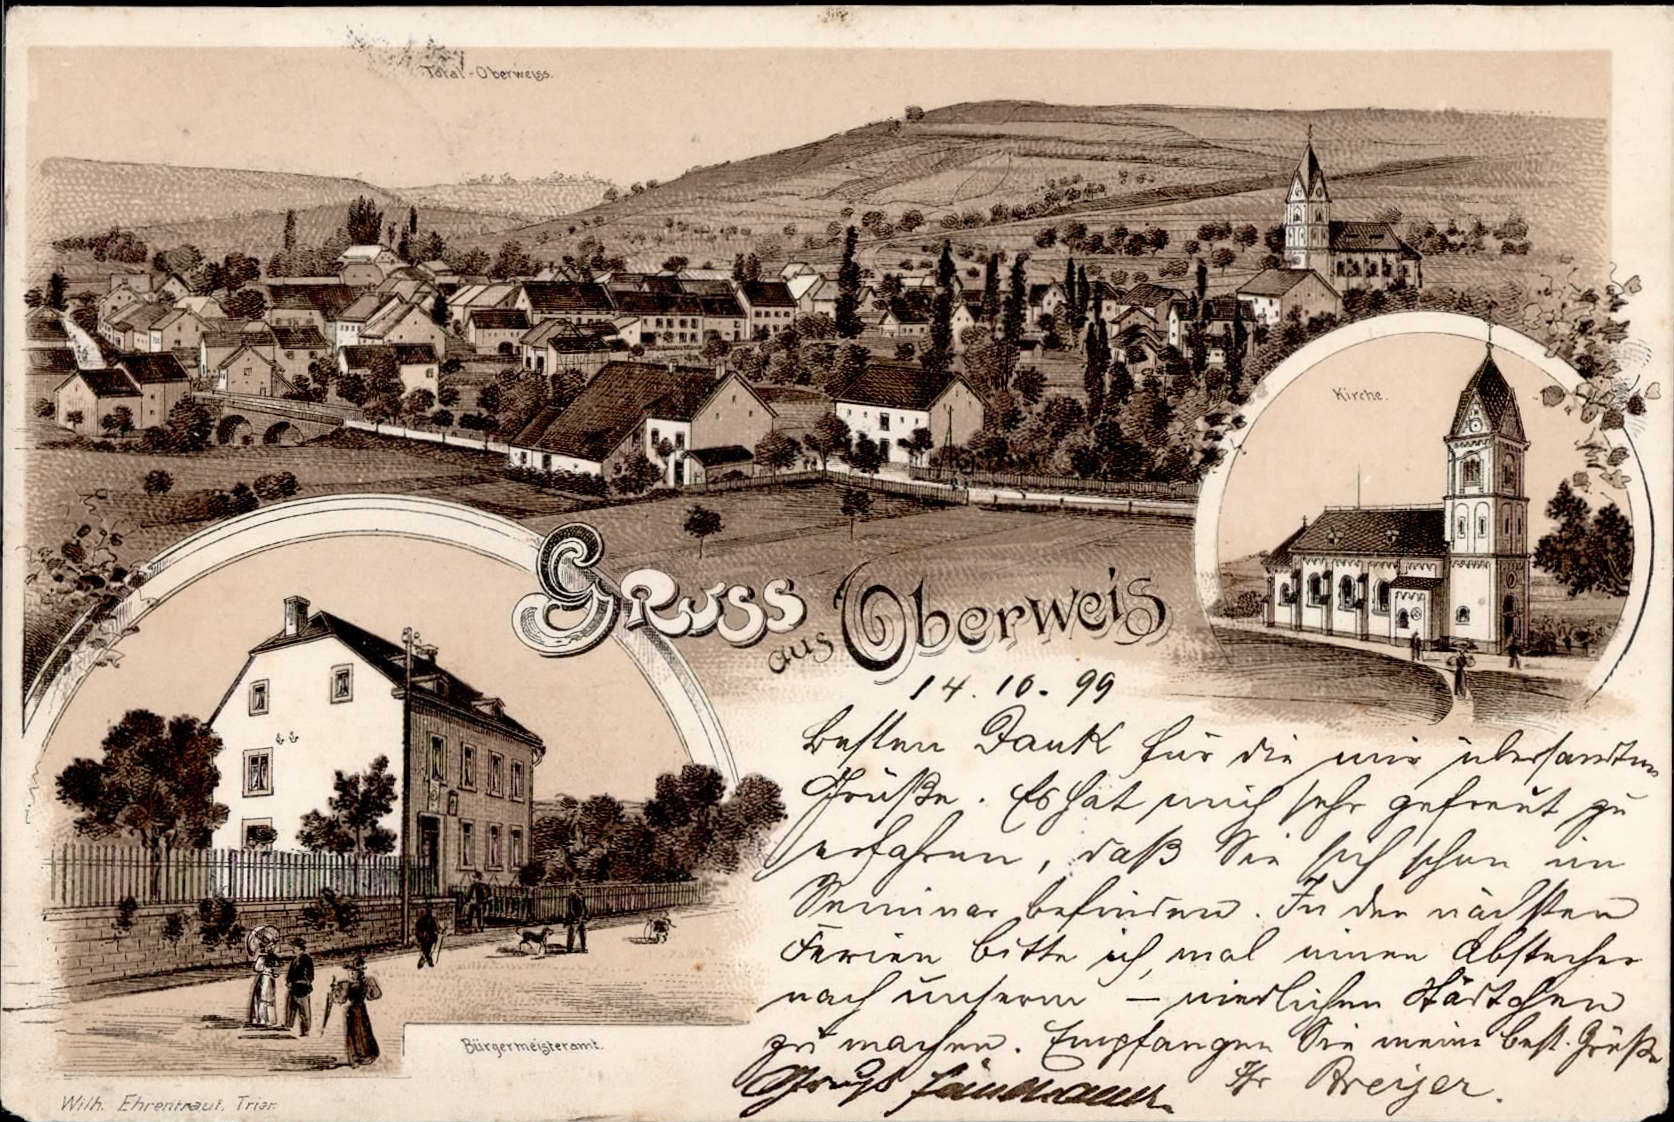 Total-Oberweiss.
Kirche.
Gruss
aus Oberweis
14. 10. 99
Besten Dank für die mir übersandten
Grüße. Es hat mich sehr gefreut zu
erfahren, daß Sie sich schon im
Seminar befinden. In den nächsten
Ferien bitte ich, mal einen Abstecher
nach unserm – niedlichen Städtchen
zu machen. Empfangen Sie meine best. Grüße
Gruß Ihr
Bürgermeisteramt.
Wilh. Ehrentraut, Trier.